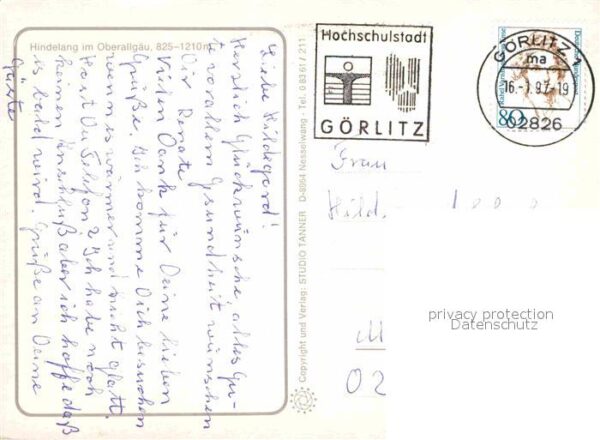 Hindelang im Oberallgäu, 825–1210 m
Liebe Hildegard!
Herzlich Glückwünsche alles Gu-
te vor allem Gesundheit wünschen
Dir Renate
Vielen Dank für Deine lieben
Grüße. Ich komme Dich besuchen
wenn es wärmer und nicht glatt.
Hast Du Telefon? Ich habe noch
keinen Anschluß aber ich hoffe daß
es bald wird. Grüße an Deine
Gäste
Copyright und Verlag: STUDIO TANNER D-8964 Nesselwang · Tel. 0 83 61 / 211
Hochschulstadt
GÖRLITZ
GÖRLITZ 1
ma
16.-1.97-19
02826
80
Frau
Hild
M
02
privacy protection
Datenschutz